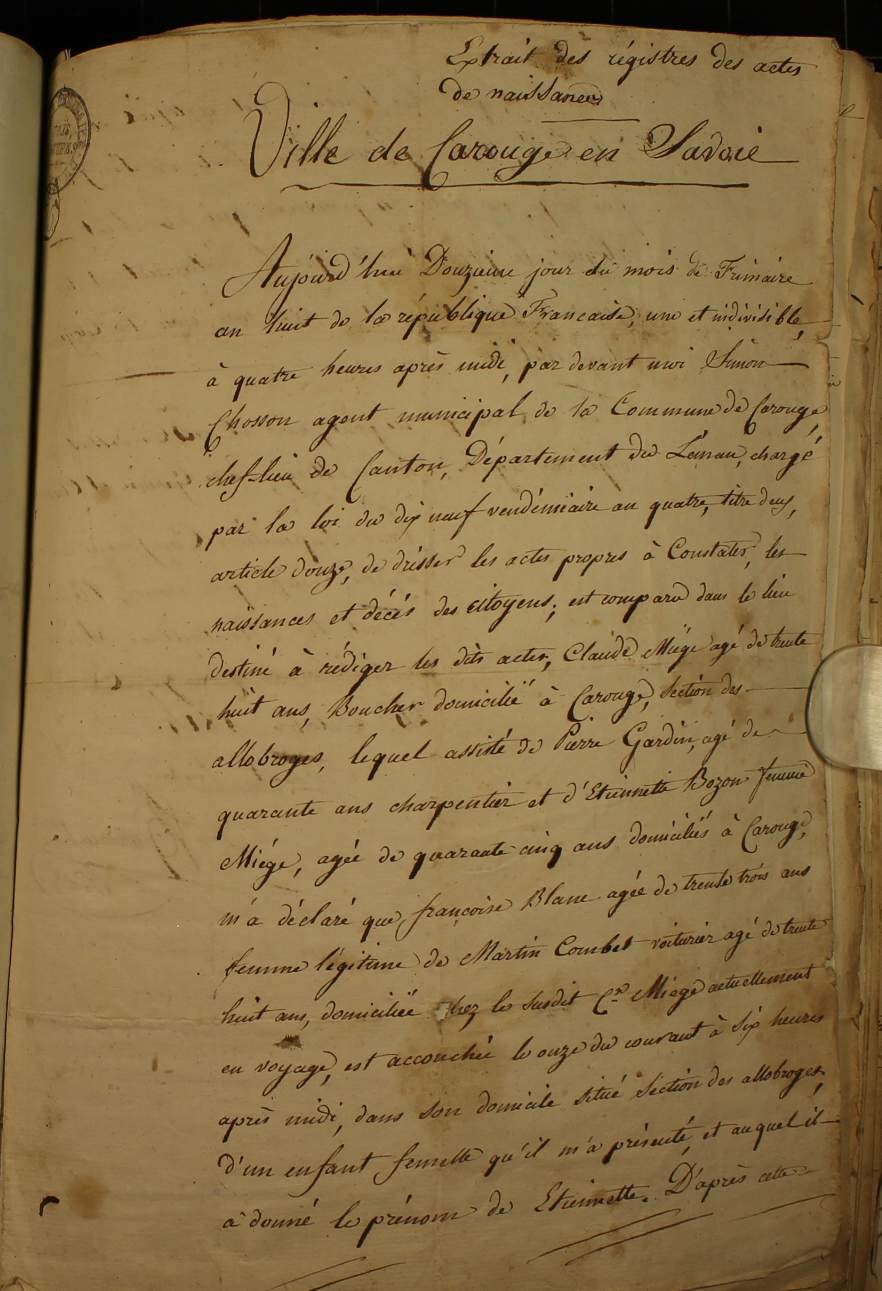 Extrait des régistres des actes
de naissances
Ville de Carouge en Savoie
Aujourd'hui Douzieme jour du mois de Frimaire
an huit de la république Francaise, une et indivisible,
à quatre heures après midi, par devant moi Simon
Chosson agent municipal de la Commune de Carouge,
chef-lieu de Canton, Département du Léman, chargé
par la loi du dix neuf vendémiaire an quatre, titre deux,
article douze, de drésser les actes propres à Constater les
naissances et décès des citoyens; est comparu dans le lieu
destiné à rédiger les dits actes, Claude Miége agé de trente
huit ans, Boucher domicilié à Carouge, Section des
allobroges, lequel assisté de Pierre Gardin, agé de
quarante ans charpentier et d'Etiennette Bozon femme
Miége, agée de quarante cinq ans domiciliés à Carouge,
m'a déclaré que françoise Blanc agée de trente trois ans
femme légitime de Martin Combet voiturier agé de trente
huit ans, domiciliée chez le susdit Cen Miege actuellement
en voyage, est accouchée le onze du courant à six heures
après midi, dans son domicile situé Section des allobroges,
d'un enfant femelle qu'il m'a présenté, et auquel il
a donné le prénom de Etiennette. D'après cette